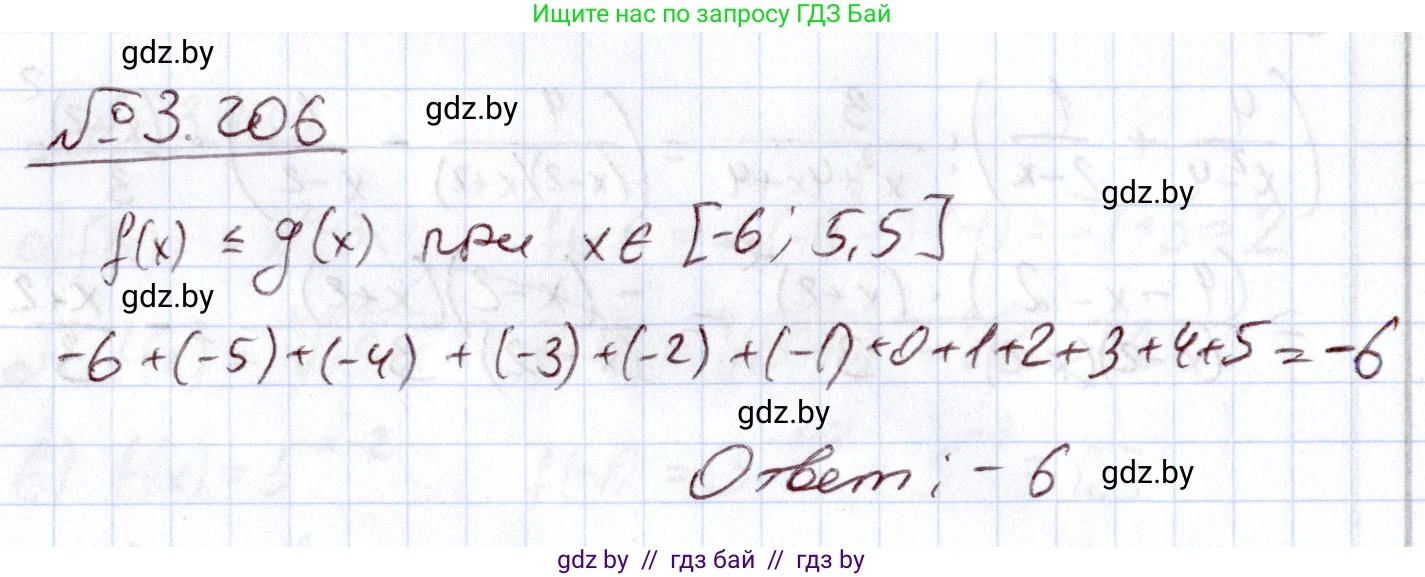 Ищите нас по запросу ГДЗ Бай
gdz.by
№ 3.206
gdz.by
gdz.by
f(x) ≤ g(x) при x ∈ [-6; 5,5]
gdz.by
-6 + (-5) + (-4) + (-3) + (-2) + (-1) + 0 + 1 + 2 + 3 + 4 + 5 = -6
gdz.by
Ответ: -6
gdz.by
gdz.by // гдз бай // гдз by